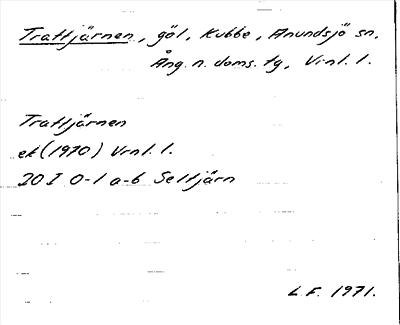 Trattjärnen, göl, Kubbe, Anundsjö sn,
Ång. n. doms. tg, Vrnl. l.
Trattjärnen
ek (1970) Vrnl. l.
20 I 0-1 a-b Seltjärn
L.F. 1971.